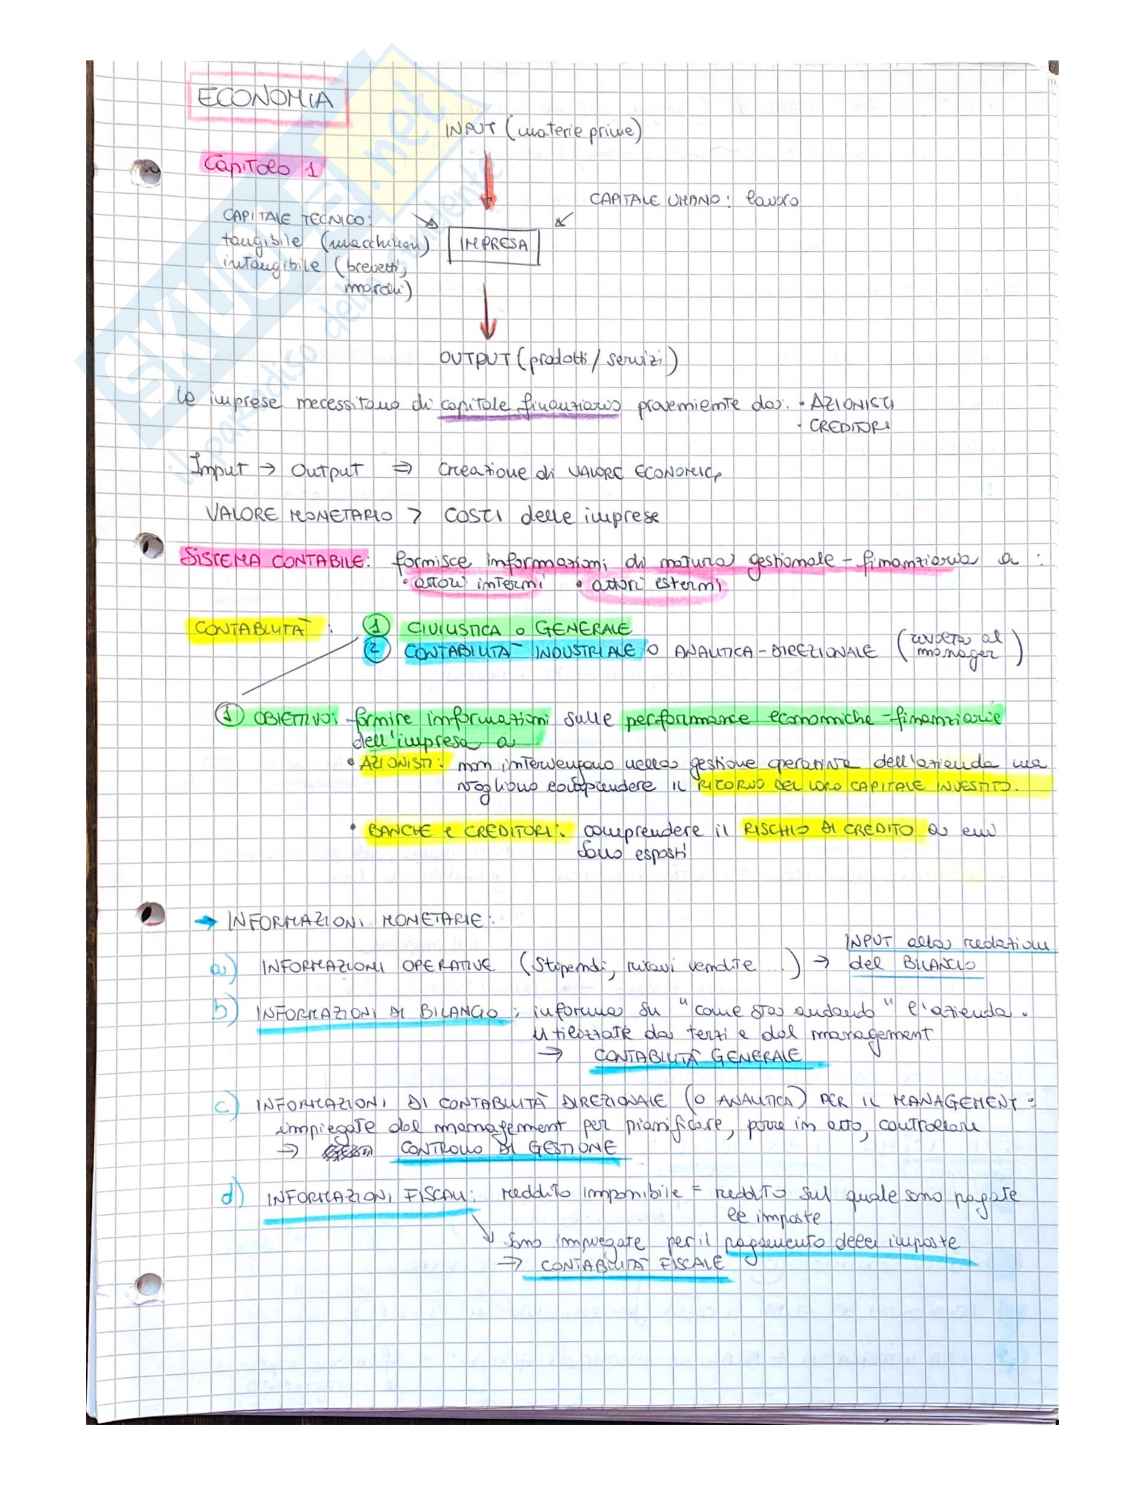 ECONOMIA
INPUT (materie prime)
Capitolo 1
CAPITALE UMANO: lavoro
CAPITALE TECNICO:
tangibile (macchinari)
intangibile (brevetti,
marchi)
IMPRESA
OUTPUT (prodotti / servizi)
Le imprese necessitano di capitale finanziario proveniente da: • AZIONISTI
• CREDITORI
Input → Output ⇒ Creazione di VALORE ECONOMICO
VALORE MONETARIO > COSTI delle imprese
SISTEMA CONTABILE: fornisce informazioni di natura gestionale - finanziaria a :
• attori interni • attori esterni
CONTABILITÀ : 1 CIVILISTICA o GENERALE
2 CONTABILITÀ INDUSTRIALE o ANALITICA - DIREZIONALE (rivolta al
manager)
1 OBIETTIVO: fornire informazioni sulle performance economiche - finanziarie
dell'impresa a
• AZIONISTI: non intervengono nella gestione operativa dell'azienda ma
vogliono comprendere il RITORNO DEL LORO CAPITALE INVESTITO.
• BANCHE e CREDITORI: comprendere il RISCHIO DI CREDITO a cui
sono esposti
→ INFORMAZIONI MONETARIE:
a) INFORMAZIONI OPERATIVE (Stipendi, ricavi vendite ...) → INPUT alla redazione
del BILANCIO
b) INFORMAZIONI DI BILANCIO: informa su "come sta andando" l'azienda.
Utilizzate da terzi e dal management
→ CONTABILITÀ GENERALE
c) INFORMAZIONI DI CONTABILITÀ DIREZIONALE (O ANALITICA) PER IL MANAGEMENT:
impiegate dal management per pianificare, porre in atto, controllare
→ CONTROLLO DI GESTIONE
d) INFORMAZIONI FISCALI: reddito imponibile = reddito sul quale sono pagate
le imposte
Sono impiegate per il pagamento delle imposte
→ CONTABILITÀ FISCALE